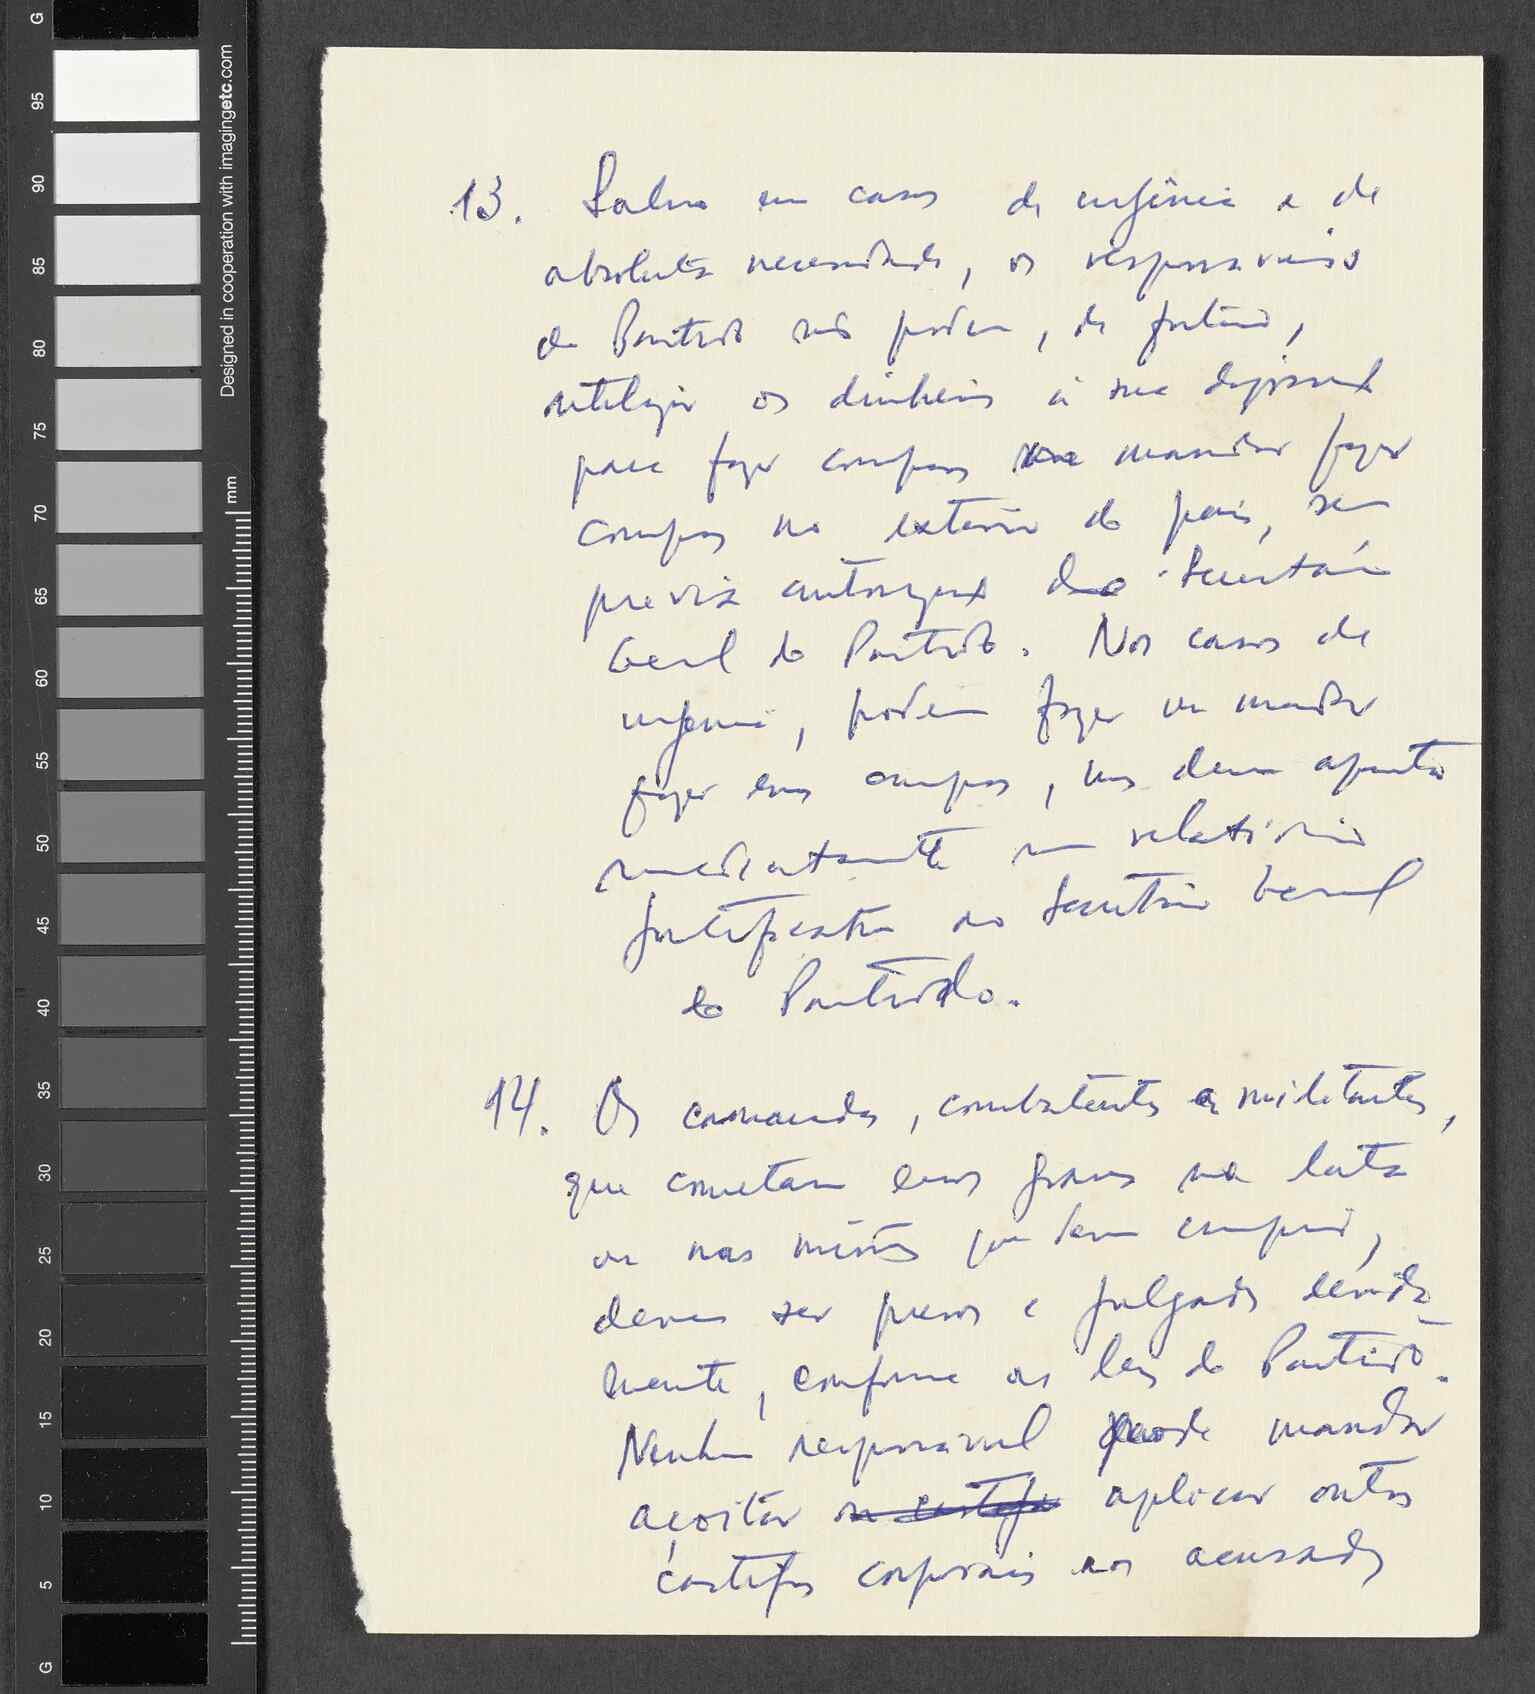 13. Salvo em casos de urgência e de
absoluta necessidade, os responsáveis
do Partido não podem, de futuro,
utilizar os dinheiros à sua disposição
para fazer compras ou mandar fazer
compras no exterior do país, sem
prévia autorização do Secretário
Geral do Partido. Nos casos de
urgência, podem fazer ou mandar
fazer essas compras, mas devem apresentar
imediatamente um relatório
justificativo ao Secretário Geral
do Partido.
14. Os comandos, combatentes e militantes,
que cometam erros graves na luta
ou nas missões que devem cumprir,
devem ser presos e julgados devida-
mente, conforme as leis do Partido.
Nenhum responsável pode mandar
açoitar ou castigar aplicar outros
castigos corporais aos acusados
G
95
90
85
80
75
70
65
60
55
50
45
40
35
30
25
20
15
10
5
G
Designed in cooperation with imagingetc.com
mm